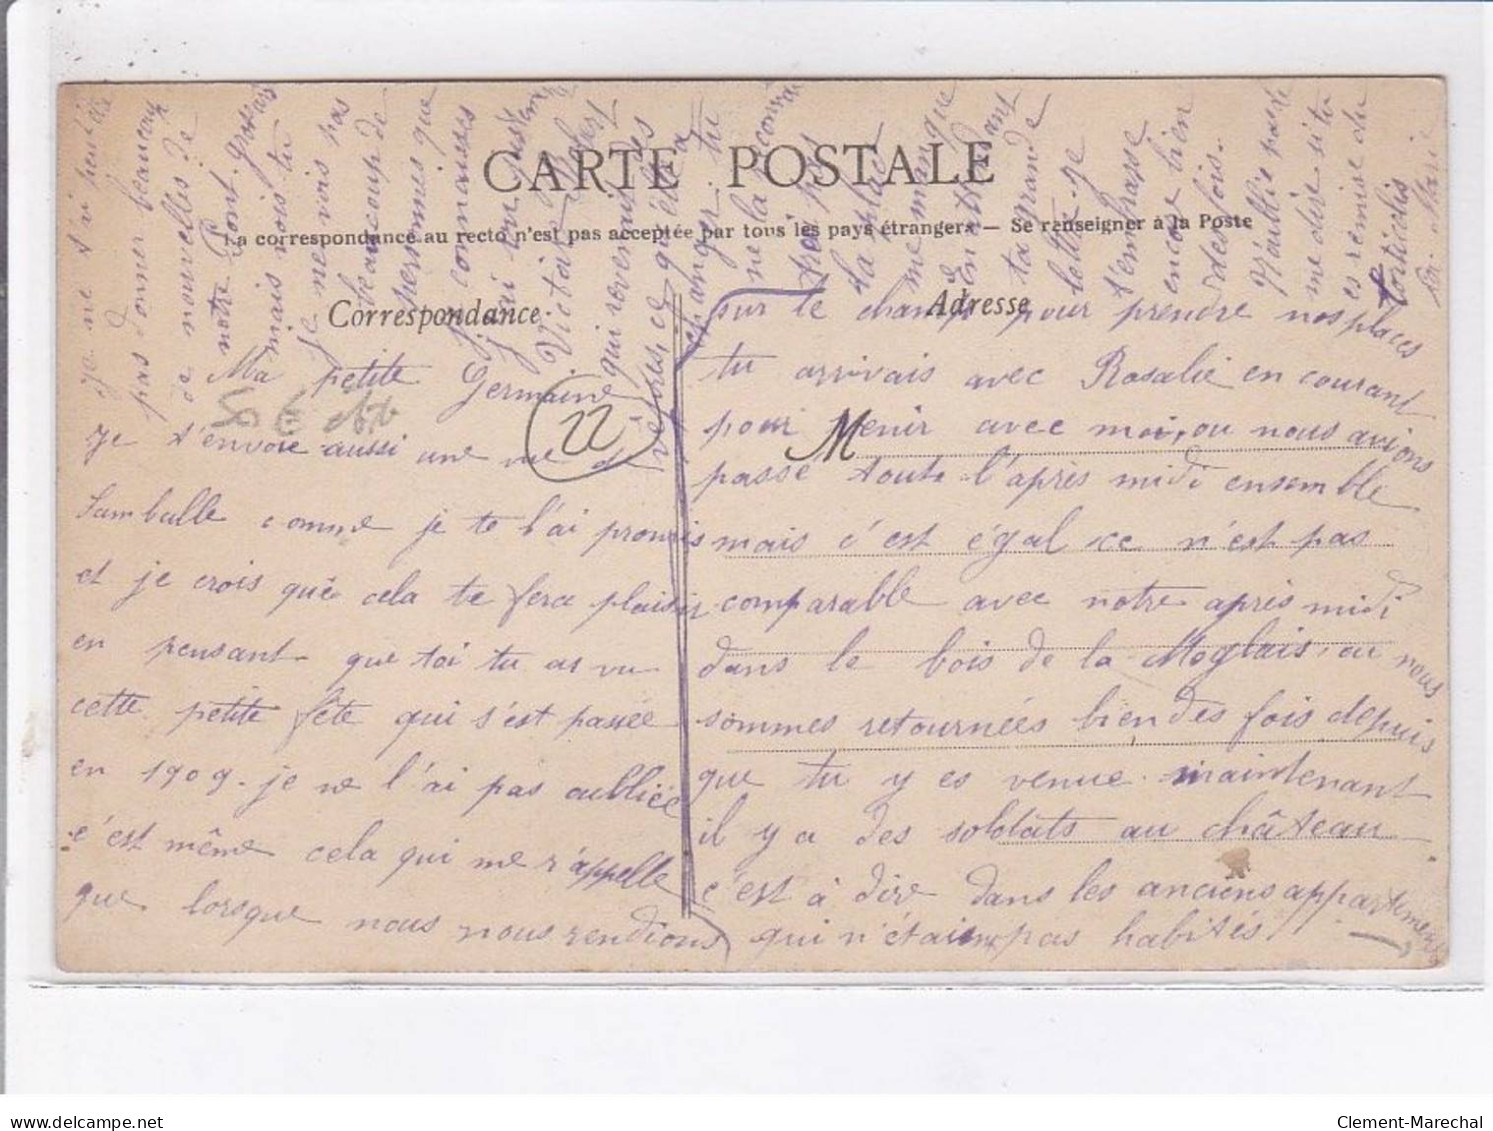 CARTE POSTALE
La correspondance au recto n'est pas acceptée par tous les pays étrangers — Se renseigner à la Poste
Correspondance
Adresse
M
22
Ma petite Germaine
je t'envoie aussi une vue de
Lamballe comme je te l'ai promis
et je crois que cela te fera plaisir
en pensant que toi tu as vu
cette petite fête qui s'est passée
en 1909. je ne l'ai pas oubliée
c'est même cela qui me rappelle
que lorsque nous nous rendions
sur le champ pour prendre nos places
tu arrivais avec Rosalie en courant
pour venir avec moi, ou nous avions
passé toute l'après midi ensemble
mais c'est égal ce n'est pas
comparable avec notre après midi
dans le bois de la Moglais, ou nous
sommes retournées bien des fois depuis
que tu y es venue. maintenant
il y a des soldats au château
c'est à dire dans les anciens appartements
qui n'étaient pas habités
je ne t'ai peut être
pas donner beaucoup
de nouvelles de
notre Pont.
mais vois tu
je ne vois pas
beaucoup de
personnes que
tu connaisses
j'ai vu
Victoire
qui revenait des
vêpres, ce qu'elle a
changer. tu
ne la
pas
la place
me manque
en attendant
ta grande
lettre. je
t'embrasse
encore bien
des fois.
N'oublie pas de
me dire si tu
es remise du
torticolis